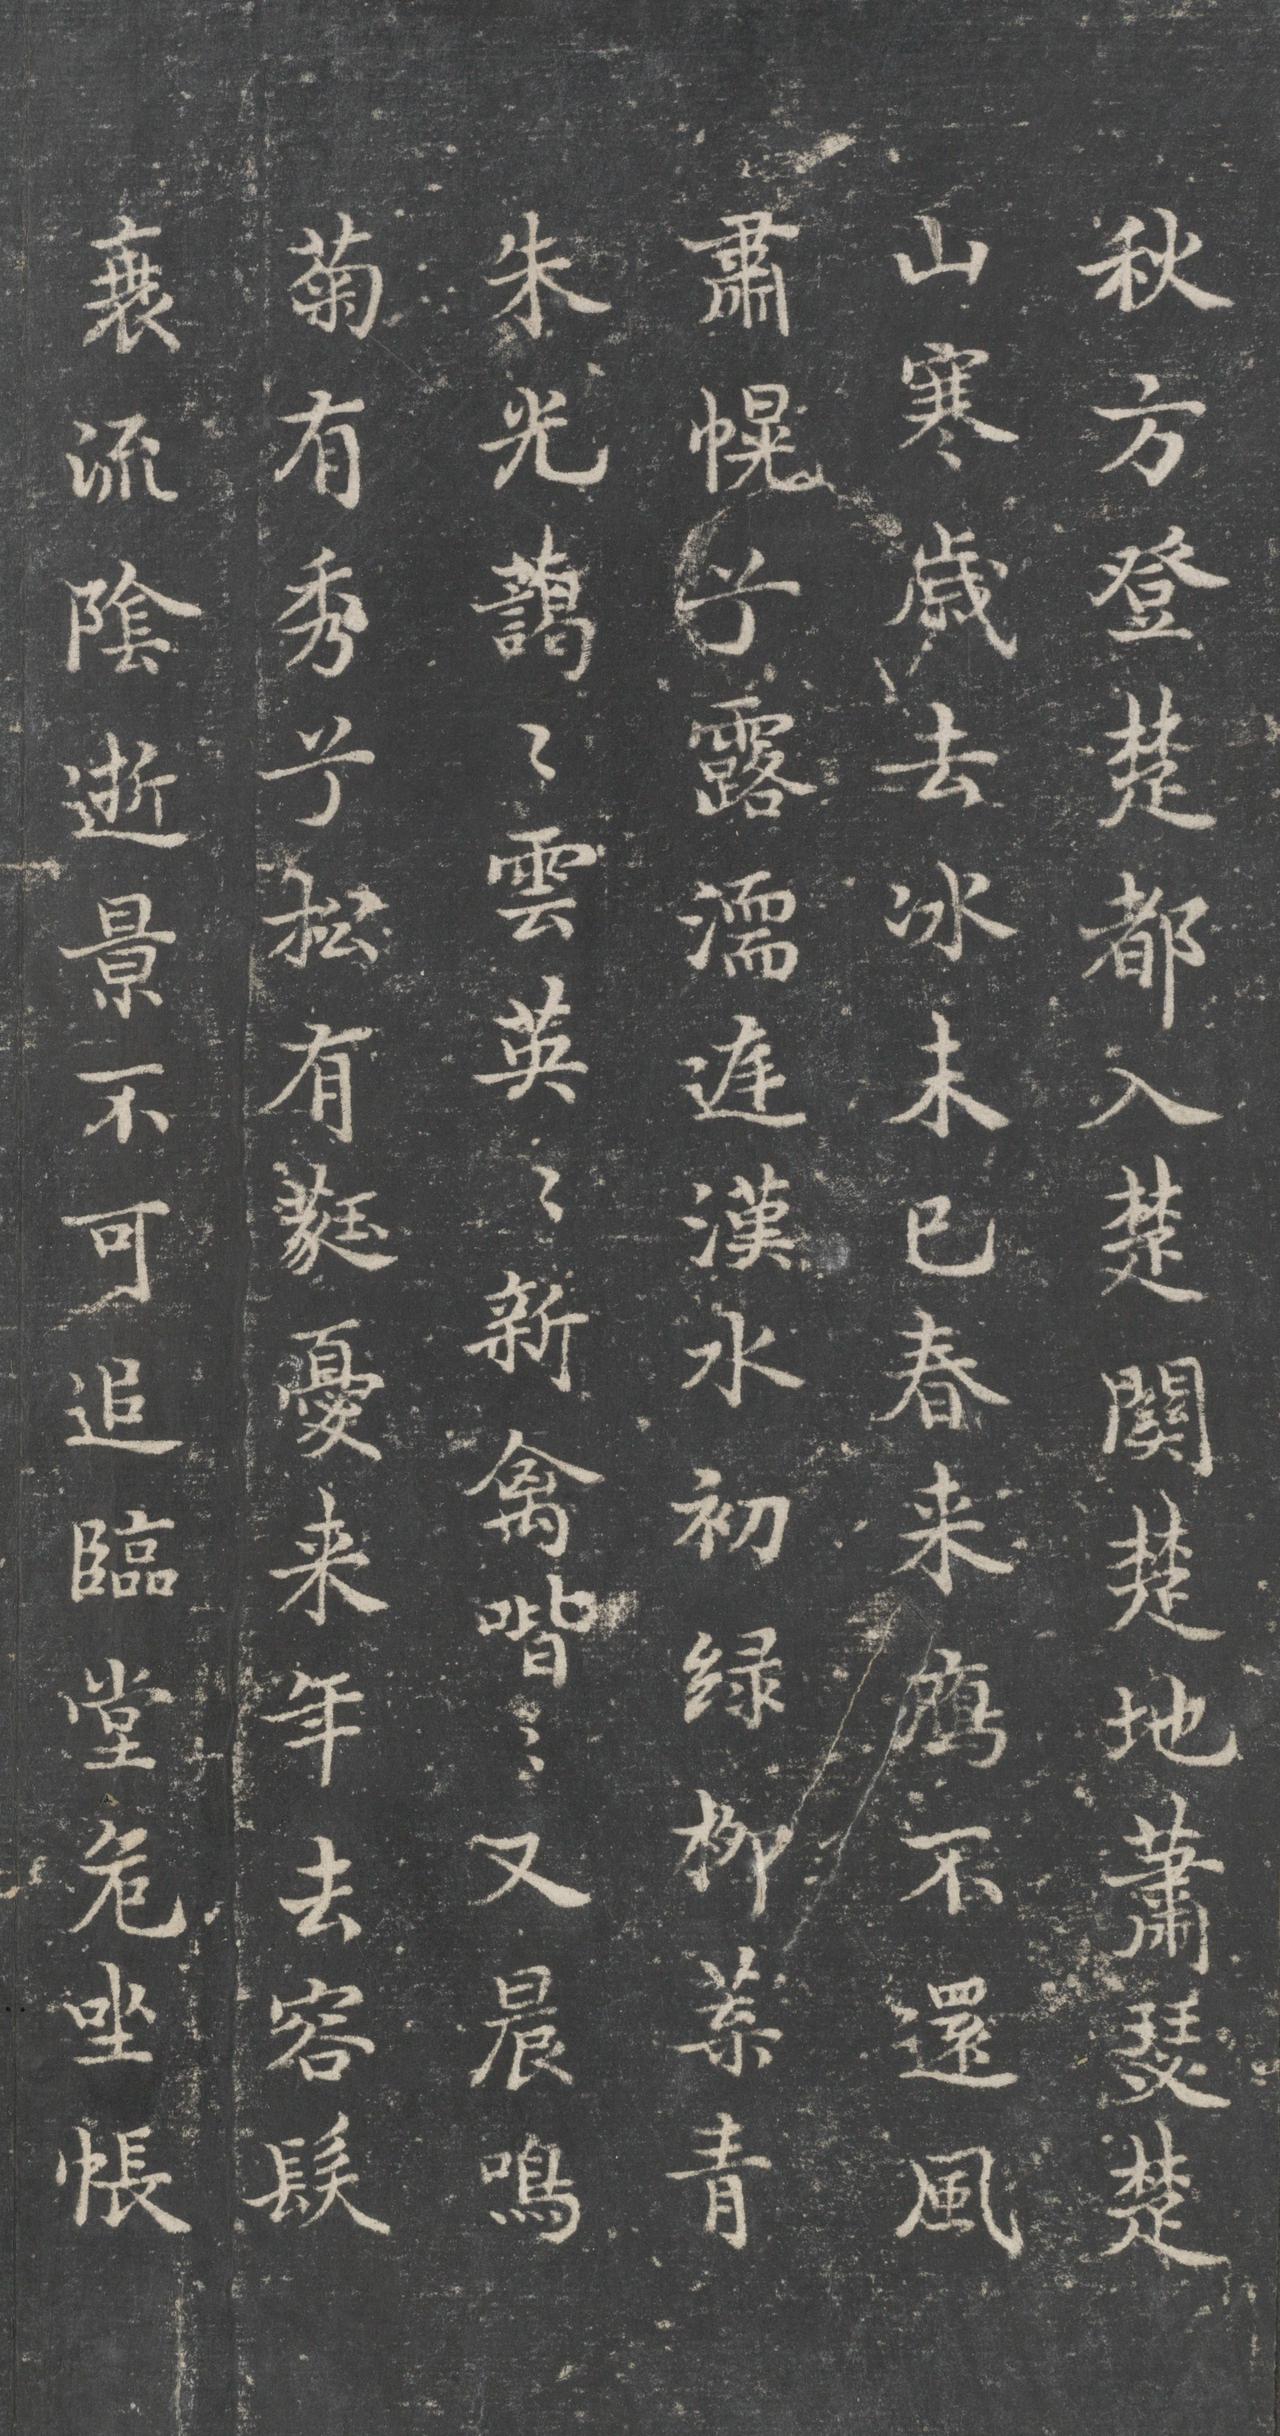 秋方登楚都入楚關楚地蕭瑟楚
山寒歲去冰未已春来鴈不還風
肅幌兮露濡庭漢水初緑柳葉青
朱光藹〻雲英〻新禽喈〻又晨鳴
菊有秀兮松有蕤憂来年去容髮
衰流陰逝景不可追臨堂危坐悵